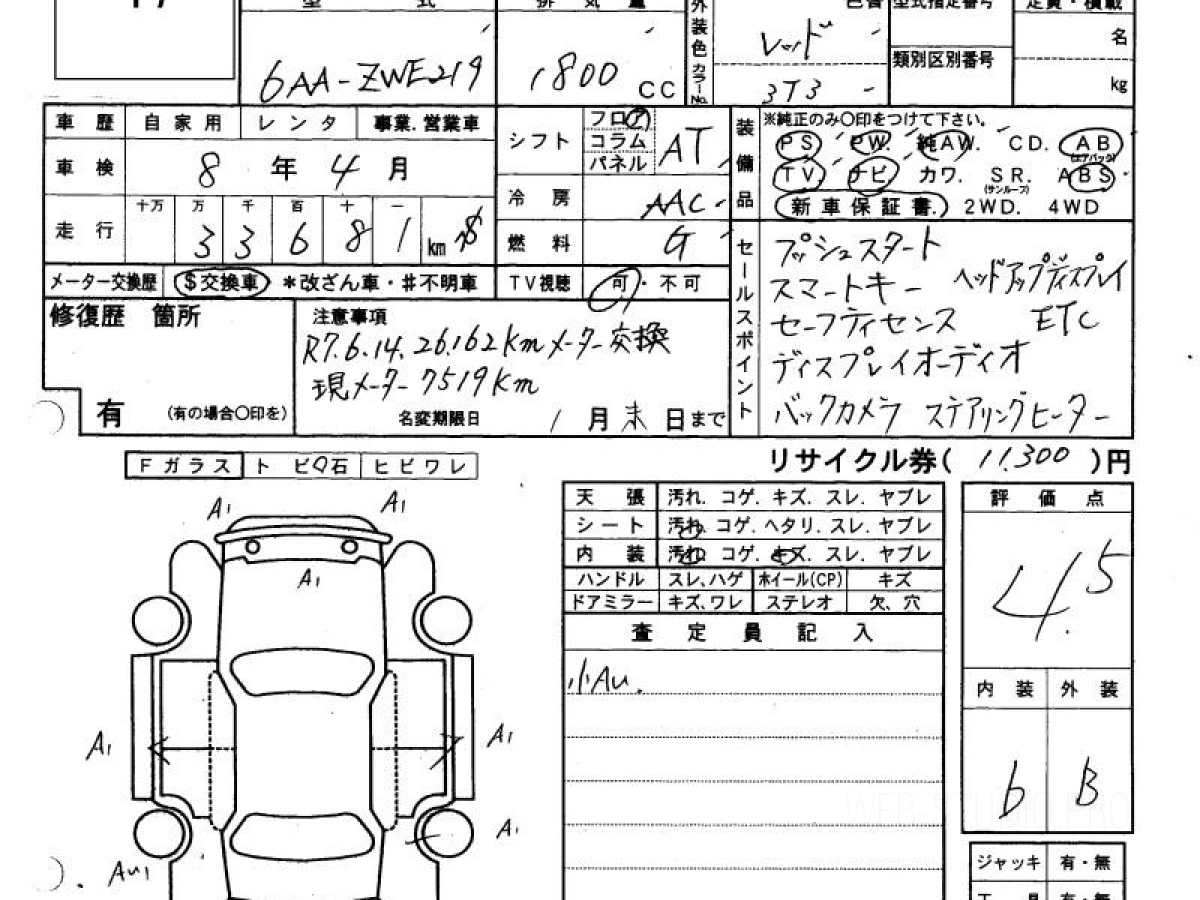 型 式 排 気 量 外装色 カラーNo. 色替 型式指定番号 定員・積載
6AA-ZWE219 1800 CC レッド 3T3 類別区別番号 名 kg
車 歴 自 家 用 レ ン タ 事業.営業車
車 検 8 年 4 月
走 行 十万 万 千 百 十 一
3 3 6 8 1 km $
メーター交換歴 $交換車 *改ざん車・#不明車
シフト フロア コラム パネル AT
冷 房 AAC
燃 料 G
TV視聴 可・不可
装備品 ※純正のみ〇印をつけて下さい。
PS PW. 純AW. CD. AB (エアバック)
TV. ナビ カワ. SR. (サンルーフ) ABS
新車保証書.) 2WD. 4WD
セールスポイント
プッシュスタート
スマートキー ヘッドアップディスプレイ
セーフティセンス ETC
ディスプレイオーディオ
バックカメラ ステアリングヒーター
修復歴 箇所
有 (有の場合〇印を)
注意事項
R7.6.14.26.162Kmメーター交換
現メーター7519Km
名変期限日 1 月 末 日まで
リサイクル券( 11.300 )円
Fガラス ト ビ 石 ヒビワレ
A1 A1
A1
A1 A1
A1
Au1
天 張 汚れ. コゲ. キズ. スレ. ヤブレ
シート 汚れ. コゲ. ヘタリ. スレ. ヤブレ
内 装 汚れ. コゲ. キズ. スレ. ヤブレ
ハンドル スレ,ハゲ ホイール(CP) キズ
ドアミラー キズ,ワレ ステレオ 欠、穴
査 定 員 記 入
小Au.
評 価 点
4.5
内 装 外 装
b B
ジャッキ 有・無
工 具 有・無